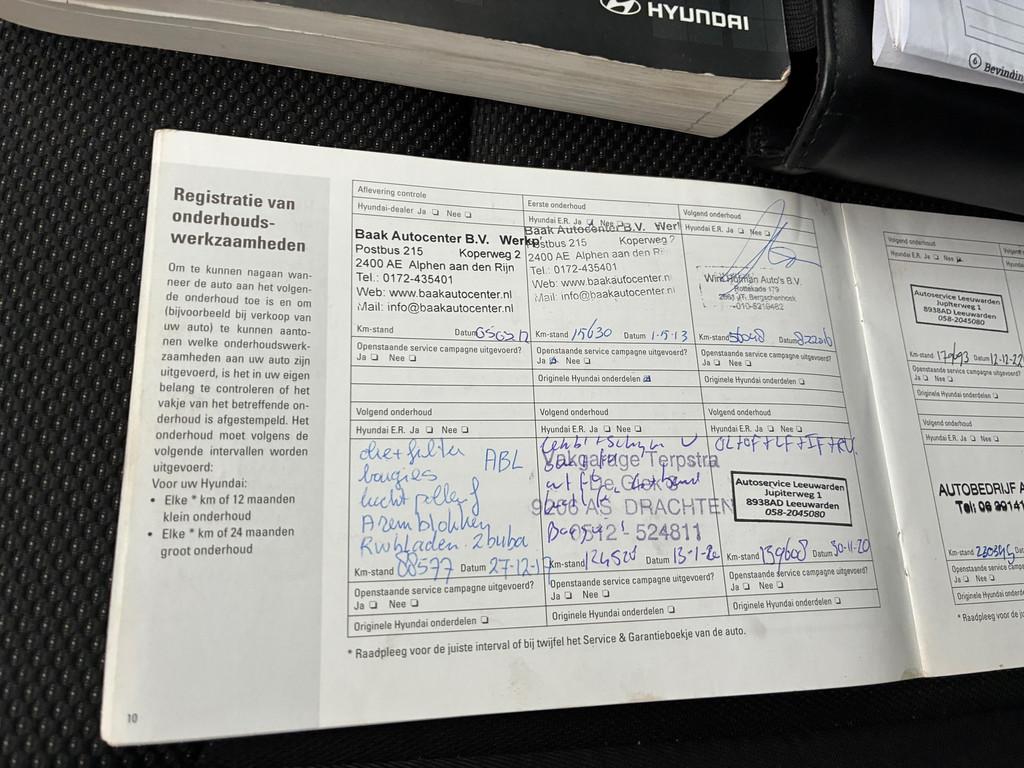 HYUNDAI
6 Bevindin
Registratie van
onderhouds-
werkzaamheden
Om te kunnen nagaan wan-
neer de auto aan het volgen-
de onderhoud toe is en om
(bijvoorbeeld bij verkoop van
uw auto) te kunnen aanto-
nen welke onderhoudswerk-
zaamheden aan uw auto zijn
uitgevoerd, is het in uw eigen
belang te controleren of het
vakje van het betreffende on-
derhoud is afgestempeld. Het
onderhoud moet volgens de
volgende intervallen worden
uitgevoerd:
Voor uw Hyundai:
• Elke * km of 12 maanden
klein onderhoud
• Elke * km of 24 maanden
groot onderhoud
10
Aflevering controle
Hyundai-dealer Ja Nee
Baak Autocenter B.V. Werkp
Postbus 215 Koperweg 2
2400 AE Alphen aan den Rijn
Tel.: 0172-435401
Web: www.baakautocenter.nl
Mail: info@baakautocenter.nl
Km-stand Datum
Openstaande service campagne uitgevoerd?
Ja Nee
Eerste onderhoud
Hyundai E.R. Ja Nee
Baak Autocenter B.V. Wer
Postbus 215 Koperweg 2
2400 AE Alphen aan den R
Tel.: 0172-435401
Web: www.baakautocenter.nl
Mail: info@baakautocenter.nl
Km-stand 15630 Datum 1-5-13
Openstaande service campagne uitgevoerd?
Ja Nee
Originele Hyundai onderdelen
Volgend onderhoud
Hyundai E.R. Ja Nee
Hofman Auto's B.V.
Rottekade 179
Bergschenhoek
Km-stand 56048 Datum
Openstaande service campagne uitgevoerd?
Ja Nee
Originele Hyundai onderdelen
Volgend onderhoud
Hyundai E.R. Ja Nee
olie+filter
bougies ABL
lucht pollen f
A remblokken
Rwbladen 2buba
Km-stand 88577 Datum 27-12-17
Openstaande service campagne uitgevoerd?
Ja Nee
Originele Hyundai onderdelen
Volgend onderhoud
Hyundai E.R. Ja Nee
Vakgarage Terpstra
DRACHTEN
0512 - 524811
Km-stand 124528 Datum 13-1-20
Openstaande service campagne uitgevoerd?
Ja Nee
Originele Hyundai onderdelen
Volgend onderhoud
Hyundai E.R. Ja Nee
OL+OF+LF+IF+RV
Autoservice Leeuwarden
Jupiterweg 1
8938AD Leeuwarden
058-2045080
Km-stand 139608 Datum 30-11-20
Openstaande service campagne uitgevoerd?
Ja Nee
Originele Hyundai onderdelen
* Raadpleeg voor de juiste interval of bij twijfel het Service & Garantieboekje van de auto.
Volgend onderhoud
Hyundai E.R. Ja Nee
Autoservice Leeuwarden
Jupiterweg 1
8938AD Leeuwarden
058-2045080
Km-stand 179693 Datum 12-12-22
Openstaande service campagne uitgevoerd?
Ja Nee
Originele Hyundai onderdelen
Volgend onderhoud
Hyundai E.R. Ja Nee
AUTOBEDRIJF A
Tel: 06 29141
Km-stand 220345
Openstaande service campa
Ja Nee
Originele Hyundai onderde
* Raadpleeg voor de ju